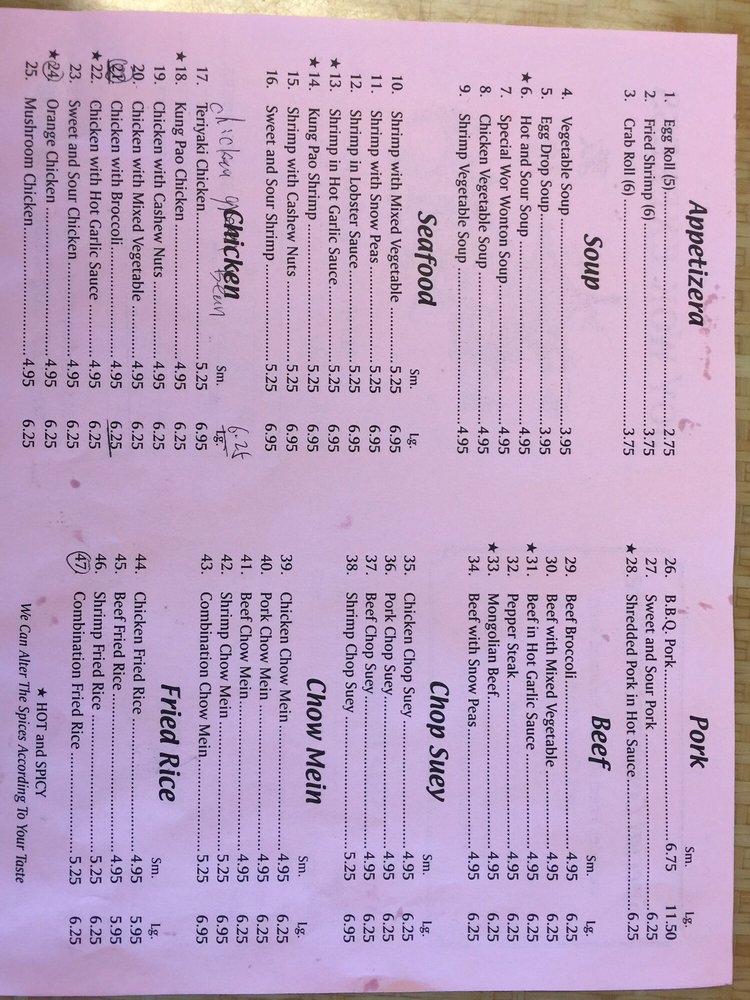 Appetizera
1. Egg Roll (5) 2.75
2. Fried Shrimp (6) 3.75
3. Crab Roll (6) 3.75
Soup
4. Vegetable Soup 3.95
5. Egg Drop Soup 3.95
★ 6. Hot and Sour Soup 4.95
7. Special Wor Wonton Soup 4.95
8. Chicken Vegetable Soup 4.95
9. Shrimp Vegetable Soup 4.95
Seafood
Sm. Lg.
10. Shrimp with Mixed Vegetable 5.25 6.95
11. Shrimp with Snow Peas 5.25 6.95
12. Shrimp in Lobster Sauce 5.25 6.95
★ 13. Shrimp in Hot Garlic Sauce 5.25 6.95
★ 14. Kung Pao Shrimp 5.25 6.95
15. Shrimp with Cashew Nuts 5.25 6.95
16. Sweet and Sour Shrimp 5.25 6.95
Chicken
chicken green bean 6.25
Sm. Lg.
17. Teriyaki Chicken 5.25 6.95
★ 18. Kung Pao Chicken 4.95 6.25
19. Chicken with Cashew Nuts 4.95 6.25
20. Chicken with Mixed Vegetable 4.95 6.25
21. Chicken with Broccoli 4.95 6.25
★ 22. Chicken with Hot Garlic Sauce 4.95 6.25
23. Sweet and Sour Chicken 4.95 6.25
★ 24. Orange Chicken 4.95 6.25
25. Mushroom Chicken 4.95 6.25
Pork
Sm. Lg.
26. B.B.Q. Pork 6.75 11.50
27. Sweet and Sour Pork 6.25
★ 28. Shredded Pork in Hot Sauce 6.25
Beef
Sm. Lg.
29. Beef Broccoli 4.95 6.25
30. Beef with Mixed Vegetable 4.95 6.25
★ 31. Beef in Hot Garlic Sauce 4.95 6.25
32. Pepper Steak 4.95 6.25
★ 33. Mongolian Beef 4.95 6.25
34. Beef with Snow Peas 4.95 6.25
Chop Suey
Sm. Lg.
35. Chicken Chop Suey 4.95 6.25
36. Pork Chop Suey 4.95 6.25
37. Beef Chop Suey 4.95 6.25
38. Shrimp Chop Suey 5.25 6.95
Chow Mein
Sm. Lg.
39. Chicken Chow Mein 4.95 6.25
40. Pork Chow Mein 4.95 6.25
41. Beef Chow Mein 4.95 6.25
42. Shrimp Chow Mein 5.25 6.95
43. Combination Chow Mein 5.25 6.95
Fried Rice
Sm. Lg.
44. Chicken Fried Rice 4.95 5.95
45. Beef Fried Rice 4.95 5.95
46. Shrimp Fried Rice 5.25 6.25
47. Combination Fried Rice 5.25 6.25
★ HOT and SPICY
We Can Alter The Spices According To Your Taste